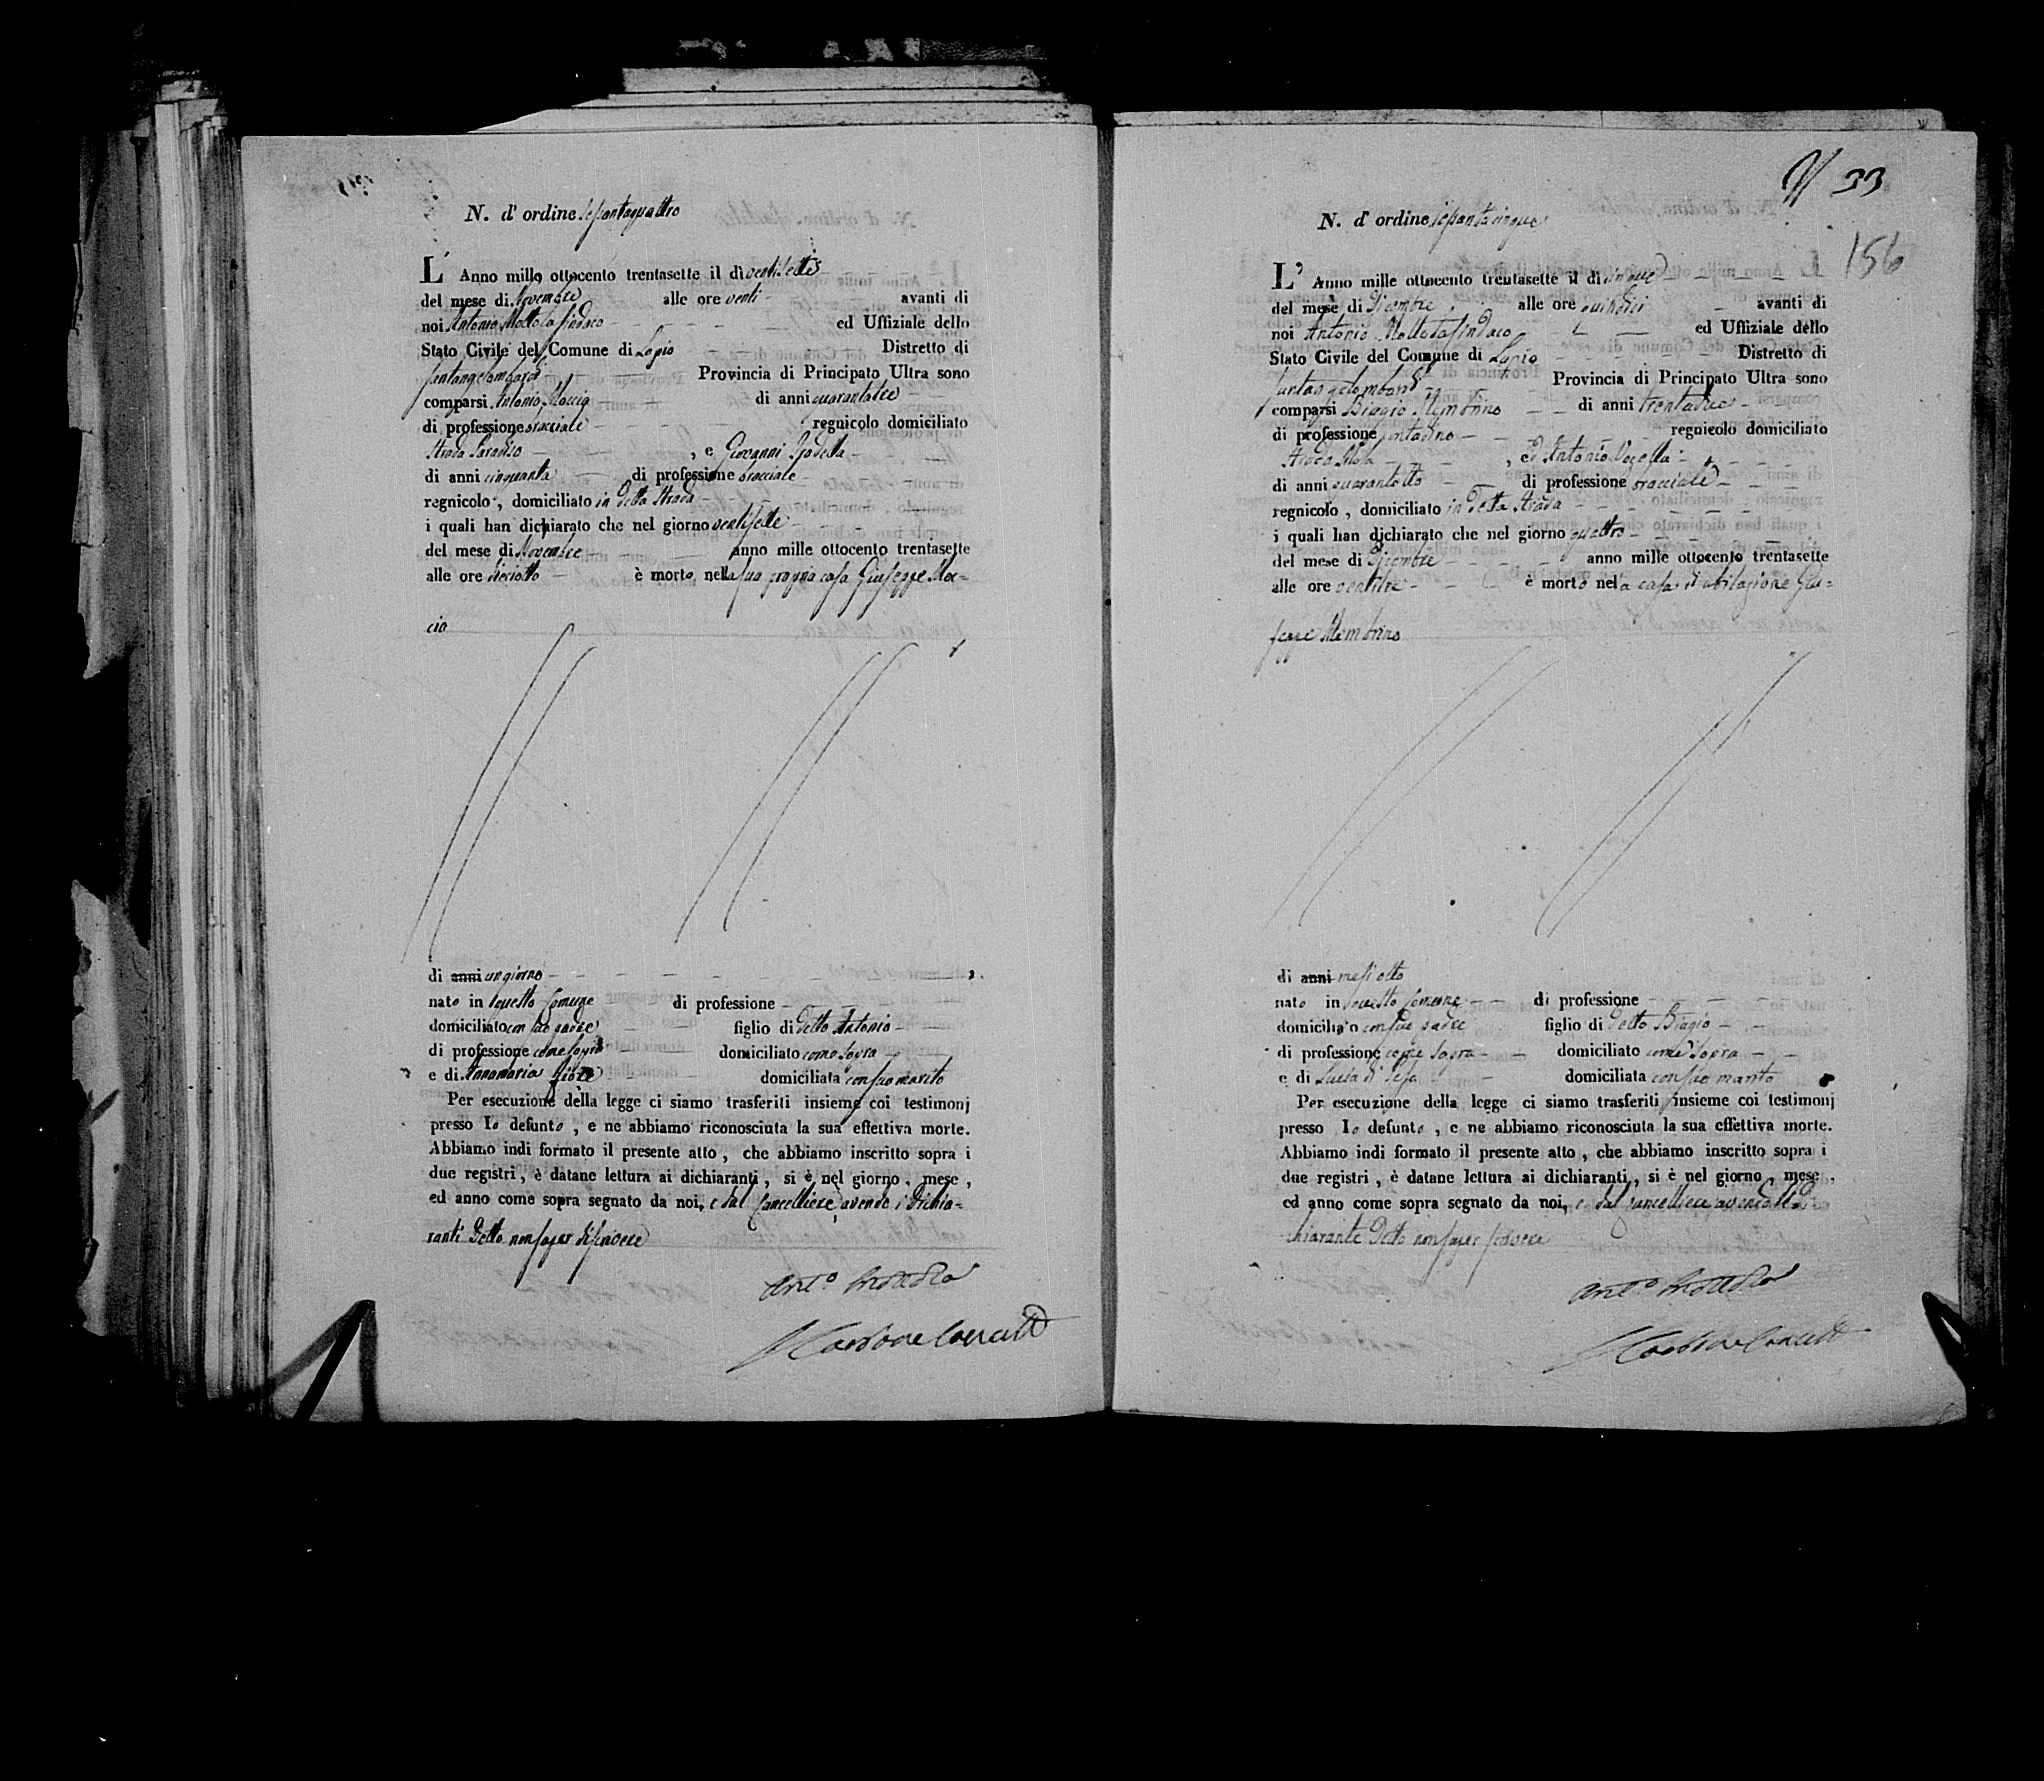 N. d'ordine sessantaquattro
L' Anno mille ottocento trentasette il dì ventisette
del mese di Novembre alle ore venti avanti di
noi Antonio Mottola Sindaco ed Uffiziale dello
Stato Civile del Comune di Lapio Distretto di
Santangelombardi Provincia di Principato Ultra sono
comparsi Antonio Moccia di anni quarantatre
di professione bracciale regnicolo domiciliato
Strada Paradiso , e Giovanni
di anni cinquanta di professione bracciale
regnicolo , domiciliato in detta Strada
i quali han dichiarato che nel giorno ventisette
del mese di Novembre anno mille ottocento trentasette
alle ore dieciotto è morto nella sua propria casa Giuseppe Moc=
cia
di anni un giorno
nato in questo Comune di professione
domiciliato con suo padre figlio di detto Antonio
di professione come sopra domiciliato come sopra
e di Annamaria domiciliata con suo marito
Per esecuzione della legge ci siamo trasferiti insieme coi testimonj
presso lo defunto , e ne abbiamo riconosciuta la sua effettiva morte.
Abbiamo indi formato il presente atto , che abbiamo inscritto sopra i
due registri , è datane lettura ai dichiaranti , si è nel giorno , mese ,
ed anno come sopra segnato da noi, e dal Cancelliere, avendo i Dichia=
ranti detto non saper di scrivere
Ant.o Mottola
33
156
N. d' ordine sessantacinque
L' Anno mille ottocento trentasette il dì cinque
del mese di Dicembre alle ore quindici avanti di
noi Antonio Mottola Sindaco ed Uffiziale dello
Stato Civile del Comune di Lapio Distretto di
Santangelombardi Provincia di Principato Ultra sono
comparsi Biagio Membrino di anni trentadue
di professione contadino regnicolo domiciliato
Strada , ed Antonio
di anni quarantotto di professione bracciale
regnicolo , domiciliato in detta Strada
i quali han dichiarato che nel giorno quattro
del mese di Dicembre anno mille ottocento trentasette
alle ore ventitre è morto nella casa di abitazione Giu=
seppe Membrino
di anni mesi otto
nato in questo Comune di professione
domiciliato con suo padre figlio di detto Biagio
di professione come sopra domiciliato come sopra
e di Lucia domiciliata con suo marito
Per esecuzione della legge ci siamo trasferiti insieme coi testimonj
presso lo defunto , e ne abbiamo riconosciuta la sua effettiva morte.
Abbiamo indi formato il presente atto , che abbiamo inscritto sopra i
due registri , è datane lettura ai dichiaranti , si è nel giorno , mese ,
ed anno come sopra segnato da noi, e dal Cancelliere avendo
chiarante detto non saper scrivere
Ant.o Mottola